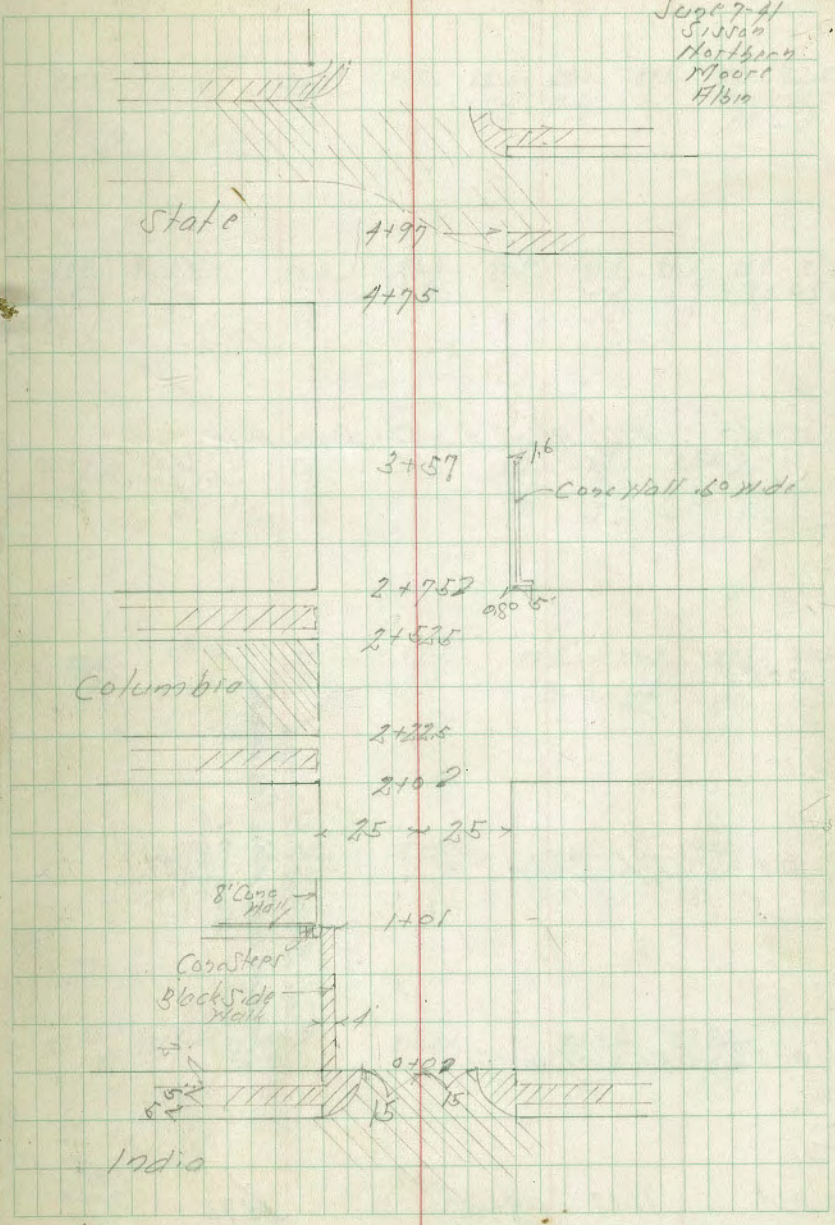 June 7-41
Sisson
Northern
Moore
Albin
State
4+97
4+75
3+57
1.6
Conc Wall .60 Wide
2+752
0.80 5'
2+525
Columbia
2+225
2+02
25 ~ 25
8" Conc
Wall
1+01
Conc Steps
Black Side
Walk
4'
0+02
15
15
India